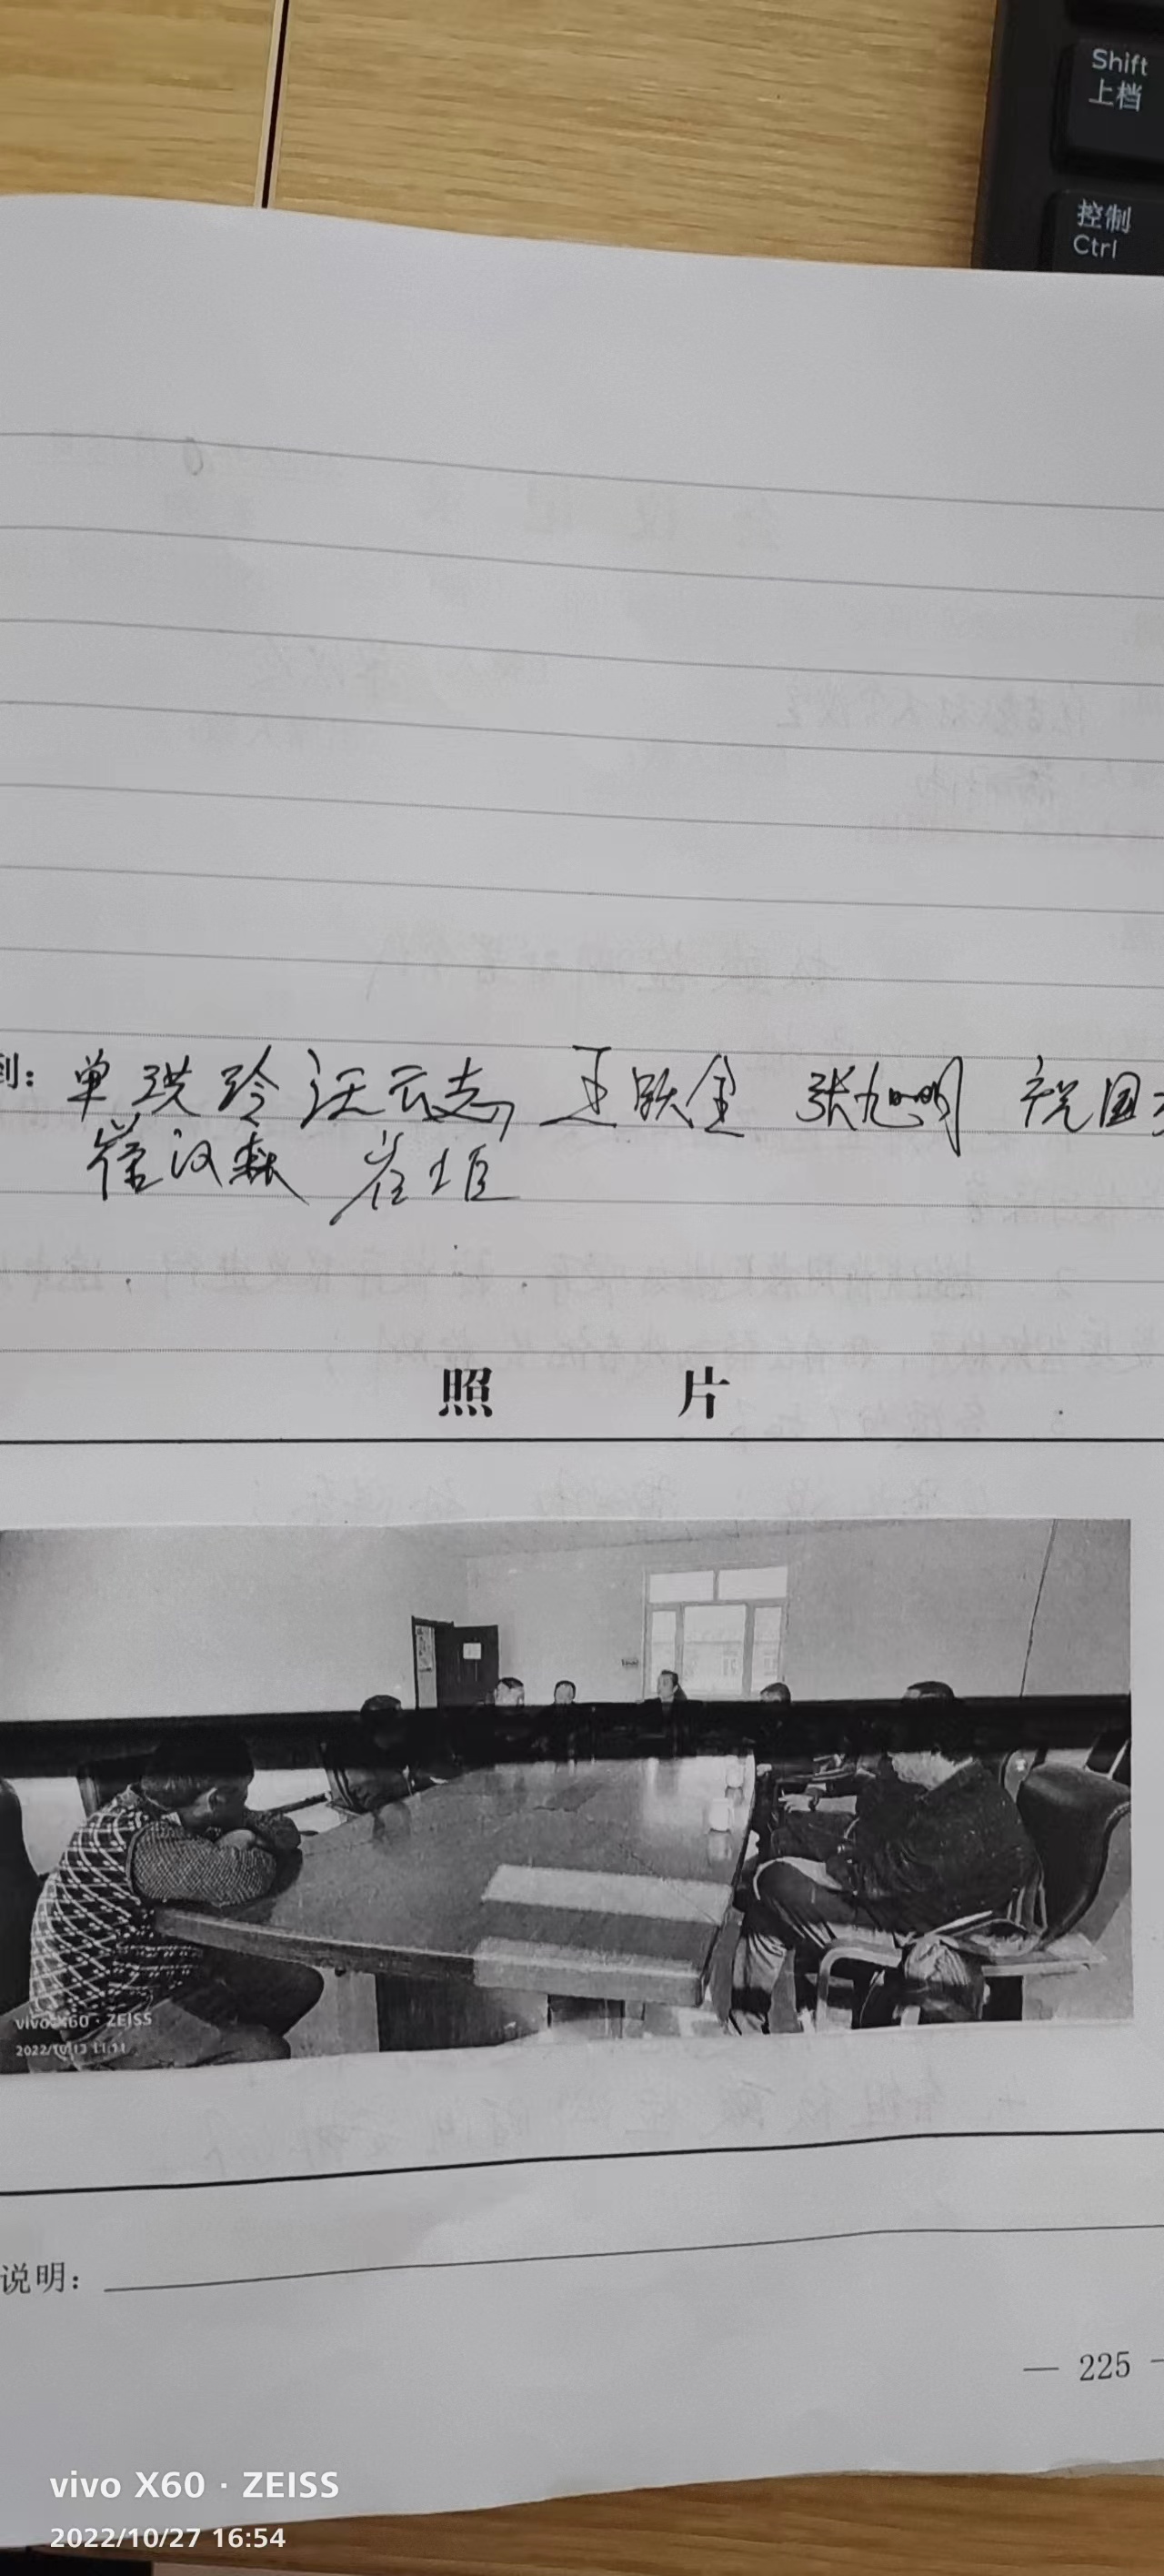 Shift
上档
控制
Ctrl
到: 单琪玲 汪云志 王跃金 张旭明 祝国
崔汉森 崔
照 片
vivo X60 · ZEISS
2022/10/13 11:11
说明:
— 225 —
vivo X60 · ZEISS
2022/10/27 16:54